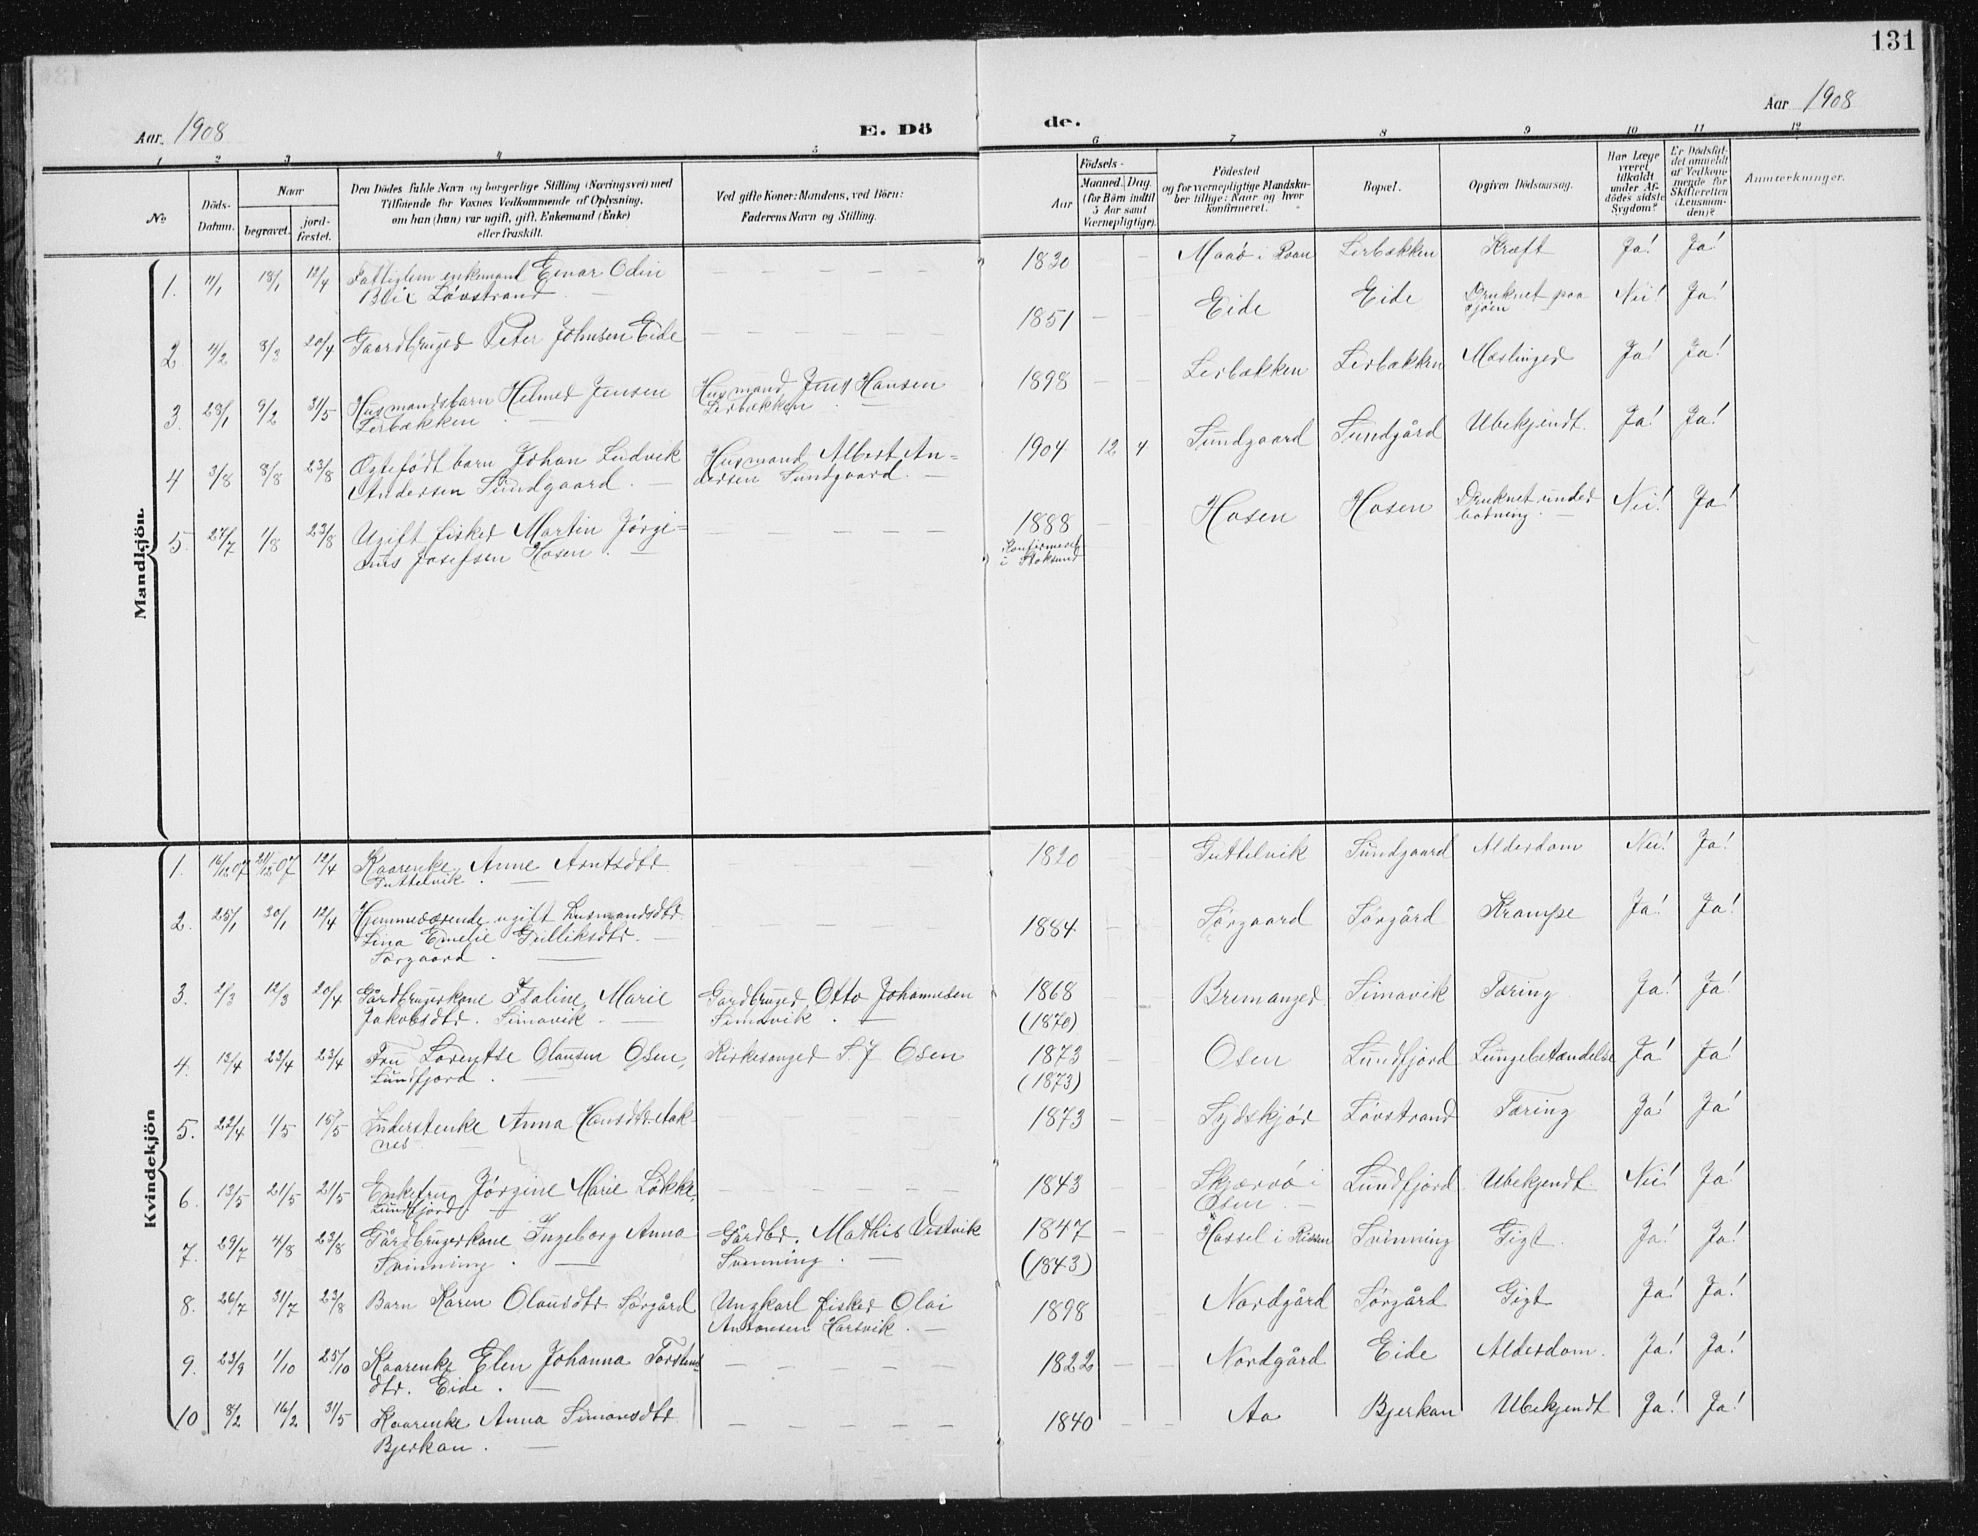 131
Aar 1908
E. Dö
de.
Aar 1908
1 2 3 4 5 6 7 8 9 10 11 12
No
Döds-
Datum.
Naar
begravet.
jord-
fæstet.
Den Dödes fulde Navn og borgerlige Stilling (Næringsvei) med
Tilföiende for Voxnes Vedkommende af Oplysning,
om han (hun) var ugift, gift, Enkemand (Enke)
eller fraskilt.
Ved gifte Koner: Mandens, ved Börn:
Faderens Navn og Stilling.
Födsels-
Aar
Maaned. Dag.
(for Börn indtil
5 Aar samt
Værnepligtige).
Födested
og for værnepligtige Mandska-
ber tillige: Naar og hvor
konfirmeret.
Bopæl.
Opgiven Dödsaarsag.
Har Læge
været
tilkaldt
under Af-
dödes sidste
Sygdom?
Er Dödsfal-
det anmeldt
af Vedkom-
mende for
Skifteretten
(Lensman-
den)?
Anmærkninger.
Mandkjön.
1. 11/1 18/1 12/4 Fattiglem enkemand Einar Odin
Blix Løvstrand — 1830 — — Maaö i Roan Lerbækken Kræft Ja! Ja!
2 4/2 8/3 20/4 Gaardbruger Peter Johnsen Eide — 1851 — — Eide Eide Druknet paa
sjöen Nei! Ja!
3. 28/1 9/2 31/5 Husmandsbarn Helmer Jensen
Lerbækken — Husmand Jens Hansen
Lerbækken — 1898 — — Lerbækken Lerbækken Mæslinger Ja! Ja!
4 3/8 8/8 23/8 Ægtefødt barn Johan Ludvik
Andersen Sundgaard. — Husmand Albert An-
dersen Sundgaard. — 1904 12 4 Sundgaard Sundgård Ubekjendt. Ja! Ja!
5. 27/7 1/8 23/8 Ugift fisker Martin Jørgi-
nus Josefsen Hosen. — 1888 — Hosen Hosen Druknet under
badning. — Nei! Ja!
Konfirmeret
i Stoksund
Kvindekjön
1. 16/12 07 21/12 07 12/4 Kaarenke Anne Arntsdtr
Guttelvik. — 1820 — — Guttelvik Sundgaard Alderdom Nei! Ja!
2. 25/1 30/1 12/4 Hjemmeværende ugift husmandsdtr
Lina Emelie Gulliksdtr. —
Sørgaard. — 1884 — — Sørgaard Sørgård Krampe Ja! Ja!
3. 2/3 12/3 20/4 Gårdbrugerkone Isaline Marie
Jakobsdtr. Simavik. — Gardbruger Otto Johannesen
Simavik. — 1868
(1870) Bremanger Simavik Tæring Ja! Ja!
4. 13/4 23/4 23/4 Fru Lorentse Olausen Osen,
Sundfjord. — Kirkesanger S. J Osen 1873
(1873) Osen Sundfjord Lungebetændelse Ja! Ja!
5. 22/4 1/5 15/5 Inderstenke Anna Hansdtr. Aak-
nes. 1873 — — Sydskjør Løvstrand Tæring Ja! Ja!
6. 13/5 21/5 21/5 Enkefru Jørgine Marie Løkke,
Sundfjord. — 1843 — — Skjærvö i
Osen — Sundfjord. Ubekjendt Nei! Ja!
7. 29/7 4/8 23/8 Gårdbrugerkone Ingeborg Anna
Svinning. — Gårdbr. Mathis Vestvik
Svinning. — 1847
(1843) — Hassel i Rissen Svinning Gigt. Ja! Ja!
8. 26/7 31/7 23/8 Barn Karen Olausdtr Sørgård Ungkarl fisker Olai
Antonsen Harsvik. — 1898 Nordgård Sørgård Gigt Ja! Ja!
9. 23/9 1/10 25/10 Kaarenke Elen Johanna Torstens
dtr. Eide. — 1822 — — Nordgård Eide Alderdom. Ja! Ja!
10 8/2 16/2 31/5 Kaarenke Anna Simonsdtr
Bjerkan. — 1840 — — Aa Bjerkan Ubekjendt Ja! Ja!